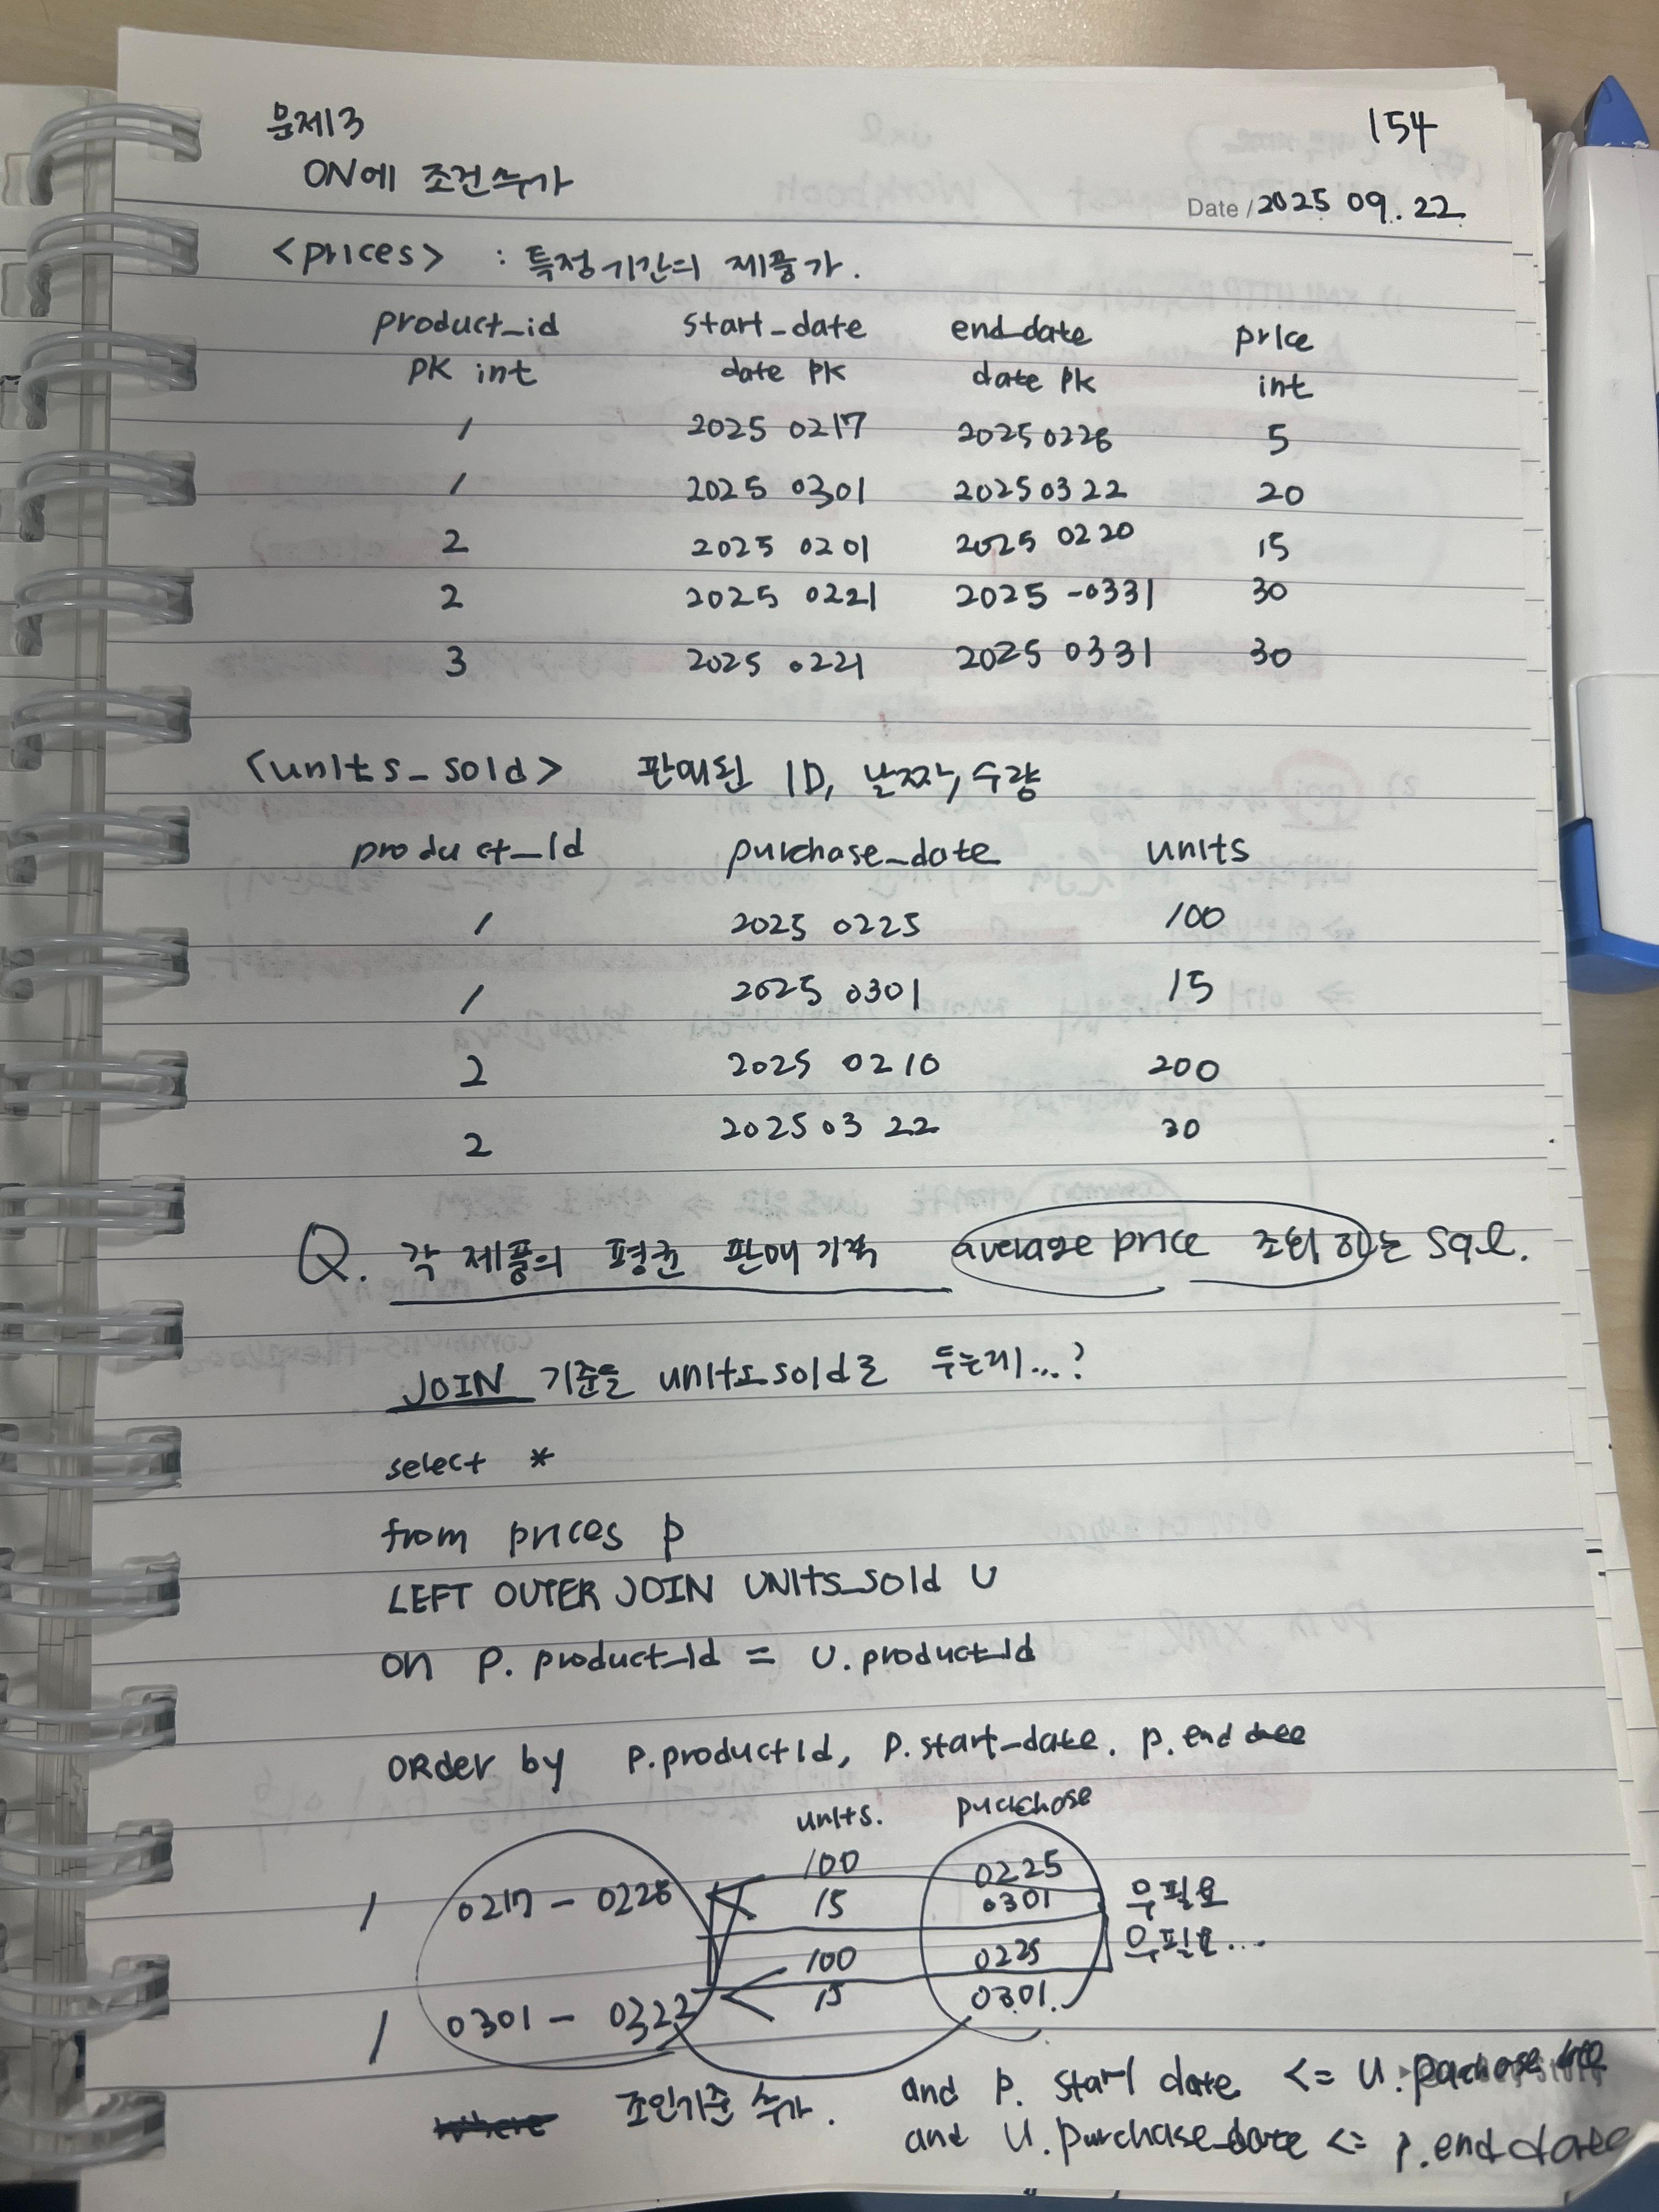 문제13
154
ON에 조건추가
Date / 2025 09. 22
<prices> : 특정기간의 제품가.
product_id start_date end_date price
PK int date PK date PK int
1 2025 0217 2025 0228 5
1 2025 0301 2025 03 22 20
2 2025 0201 2025 0220 15
2 2025 0221 2025 -0331 30
3 2025 0221 2025 0331 30
<units_sold> 판매된 ID, 날짜, 수량
product_Id purchase_date units
1 2025 0225 100
1 2025 0301 15
2 2025 0210 200
2 2025 03 22 30
Q. 각 제품의 평균 판매가격 average price 조회 하는 sql.
JOIN 기준을 units_sold로 두는게...?
select *
from prices p
LEFT OUTER JOIN UNIts_sold U
on p. product_Id = U.product_Id
ORder by p.productId, p.start_date. p.end date
units. purchase
100 0225
1 0217 - 0228 15 0301 우필요
100 0225 우필요...
1 0301 - 0322 15 0301.
조인기준 추가. and p. start date <= U.purchase
and U.purchase_date <= p.end date